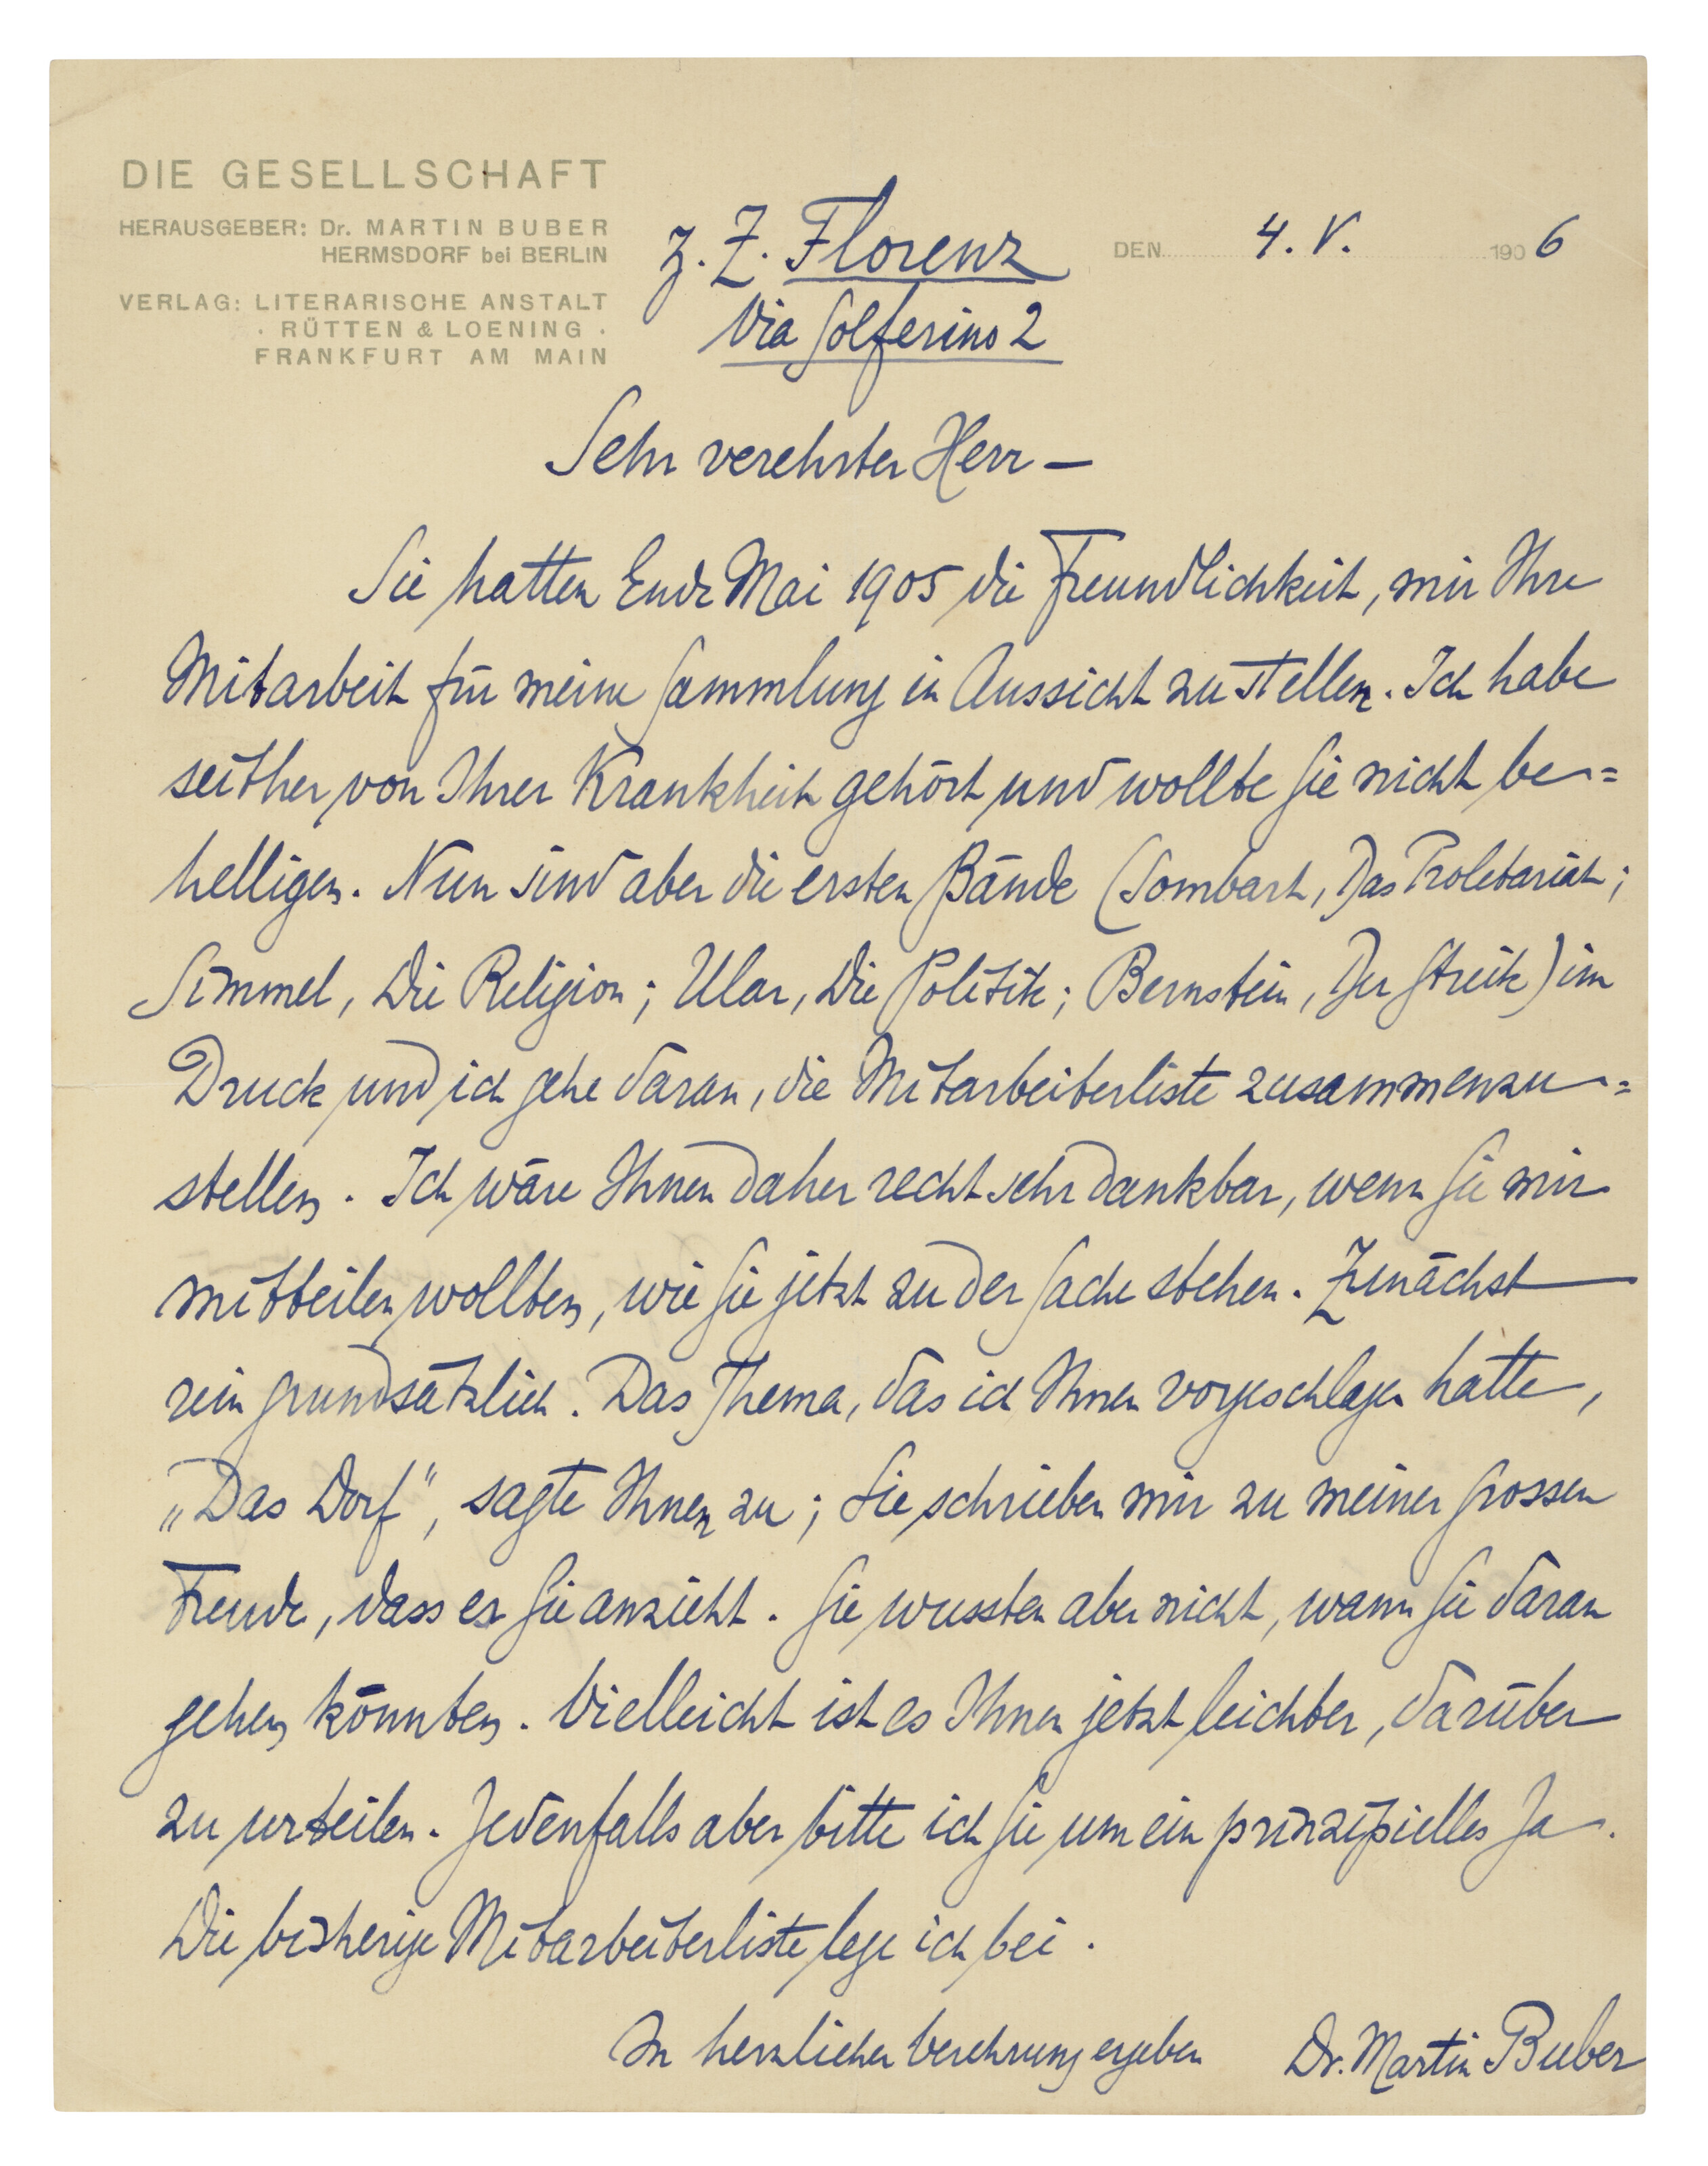 DIE GESELLSCHAFT
HERAUSGEBER: Dr. MARTIN BUBER
HERMSDORF bei BERLIN
VERLAG: LITERARISCHE ANSTALT
· RÜTTEN & LOENING ·
FRANKFURT AM MAIN
z. Z. Florenz
Via Solferino 2
DEN 4. V. 1906
Sehr verehrter Herr –
Sie hatten Ende Mai 1905 die Freundlichkeit, mir Ihre
Mitarbeit für meine Sammlung in Aussicht zu stellen. Ich habe
seither von Ihrer Krankheit gehört und wollte Sie nicht be=
helligen. Nun sind aber die ersten Bände (Sombart, Das Proletariat;
Simmel, Die Religion; Ular, Die Politik; Bernstein, Der Streik) im
Druck und ich gehe daran, die Mitarbeiterliste zusammenzu=
stellen. Ich wäre Ihnen daher recht sehr dankbar, wenn Sie mir
mitteilen wollten, wie Sie jetzt zu der Sache stehen. Zunächst
rein grundsätzlich. Das Thema, das ich Ihnen vorgeschlagen hatte,
„Das Dorf“, sagte Ihnen zu; Sie schrieben mir zu meiner grossen
Freude, dass es Sie anzieht. Sie wussten aber nicht, wann Sie daran
gehen könnten. Vielleicht ist es Ihnen jetzt leichter, darüber
zu urteilen. Jedenfalls aber bitte ich Sie um ein prinzipielles Ja.
Die bisherige Mitarbeiterliste lege ich bei.
In herzlicher Verehrung ergeben Dr. Martin Buber